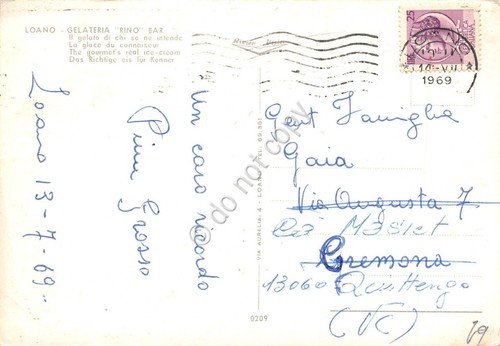 LOANO - GELATERIA "RINO" BAR
Il gelato di chi se ne intende
La glace du connaisseur
The gourmet's real ice-cream
Das Richtige eis für Kenner
Un caro ricordo
Pinu Grosso
Loano 13-7-69
VIA AURELIA 4 - LOANO
0209
25
LOANO
14-VII
1969
Gent Famiglia
Gaia
Via Augusta 7
Cremona
13060 Quittengo
(VC)
do not copy